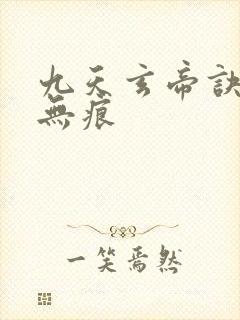 九天玄帝訣
無痕
一笑焉然